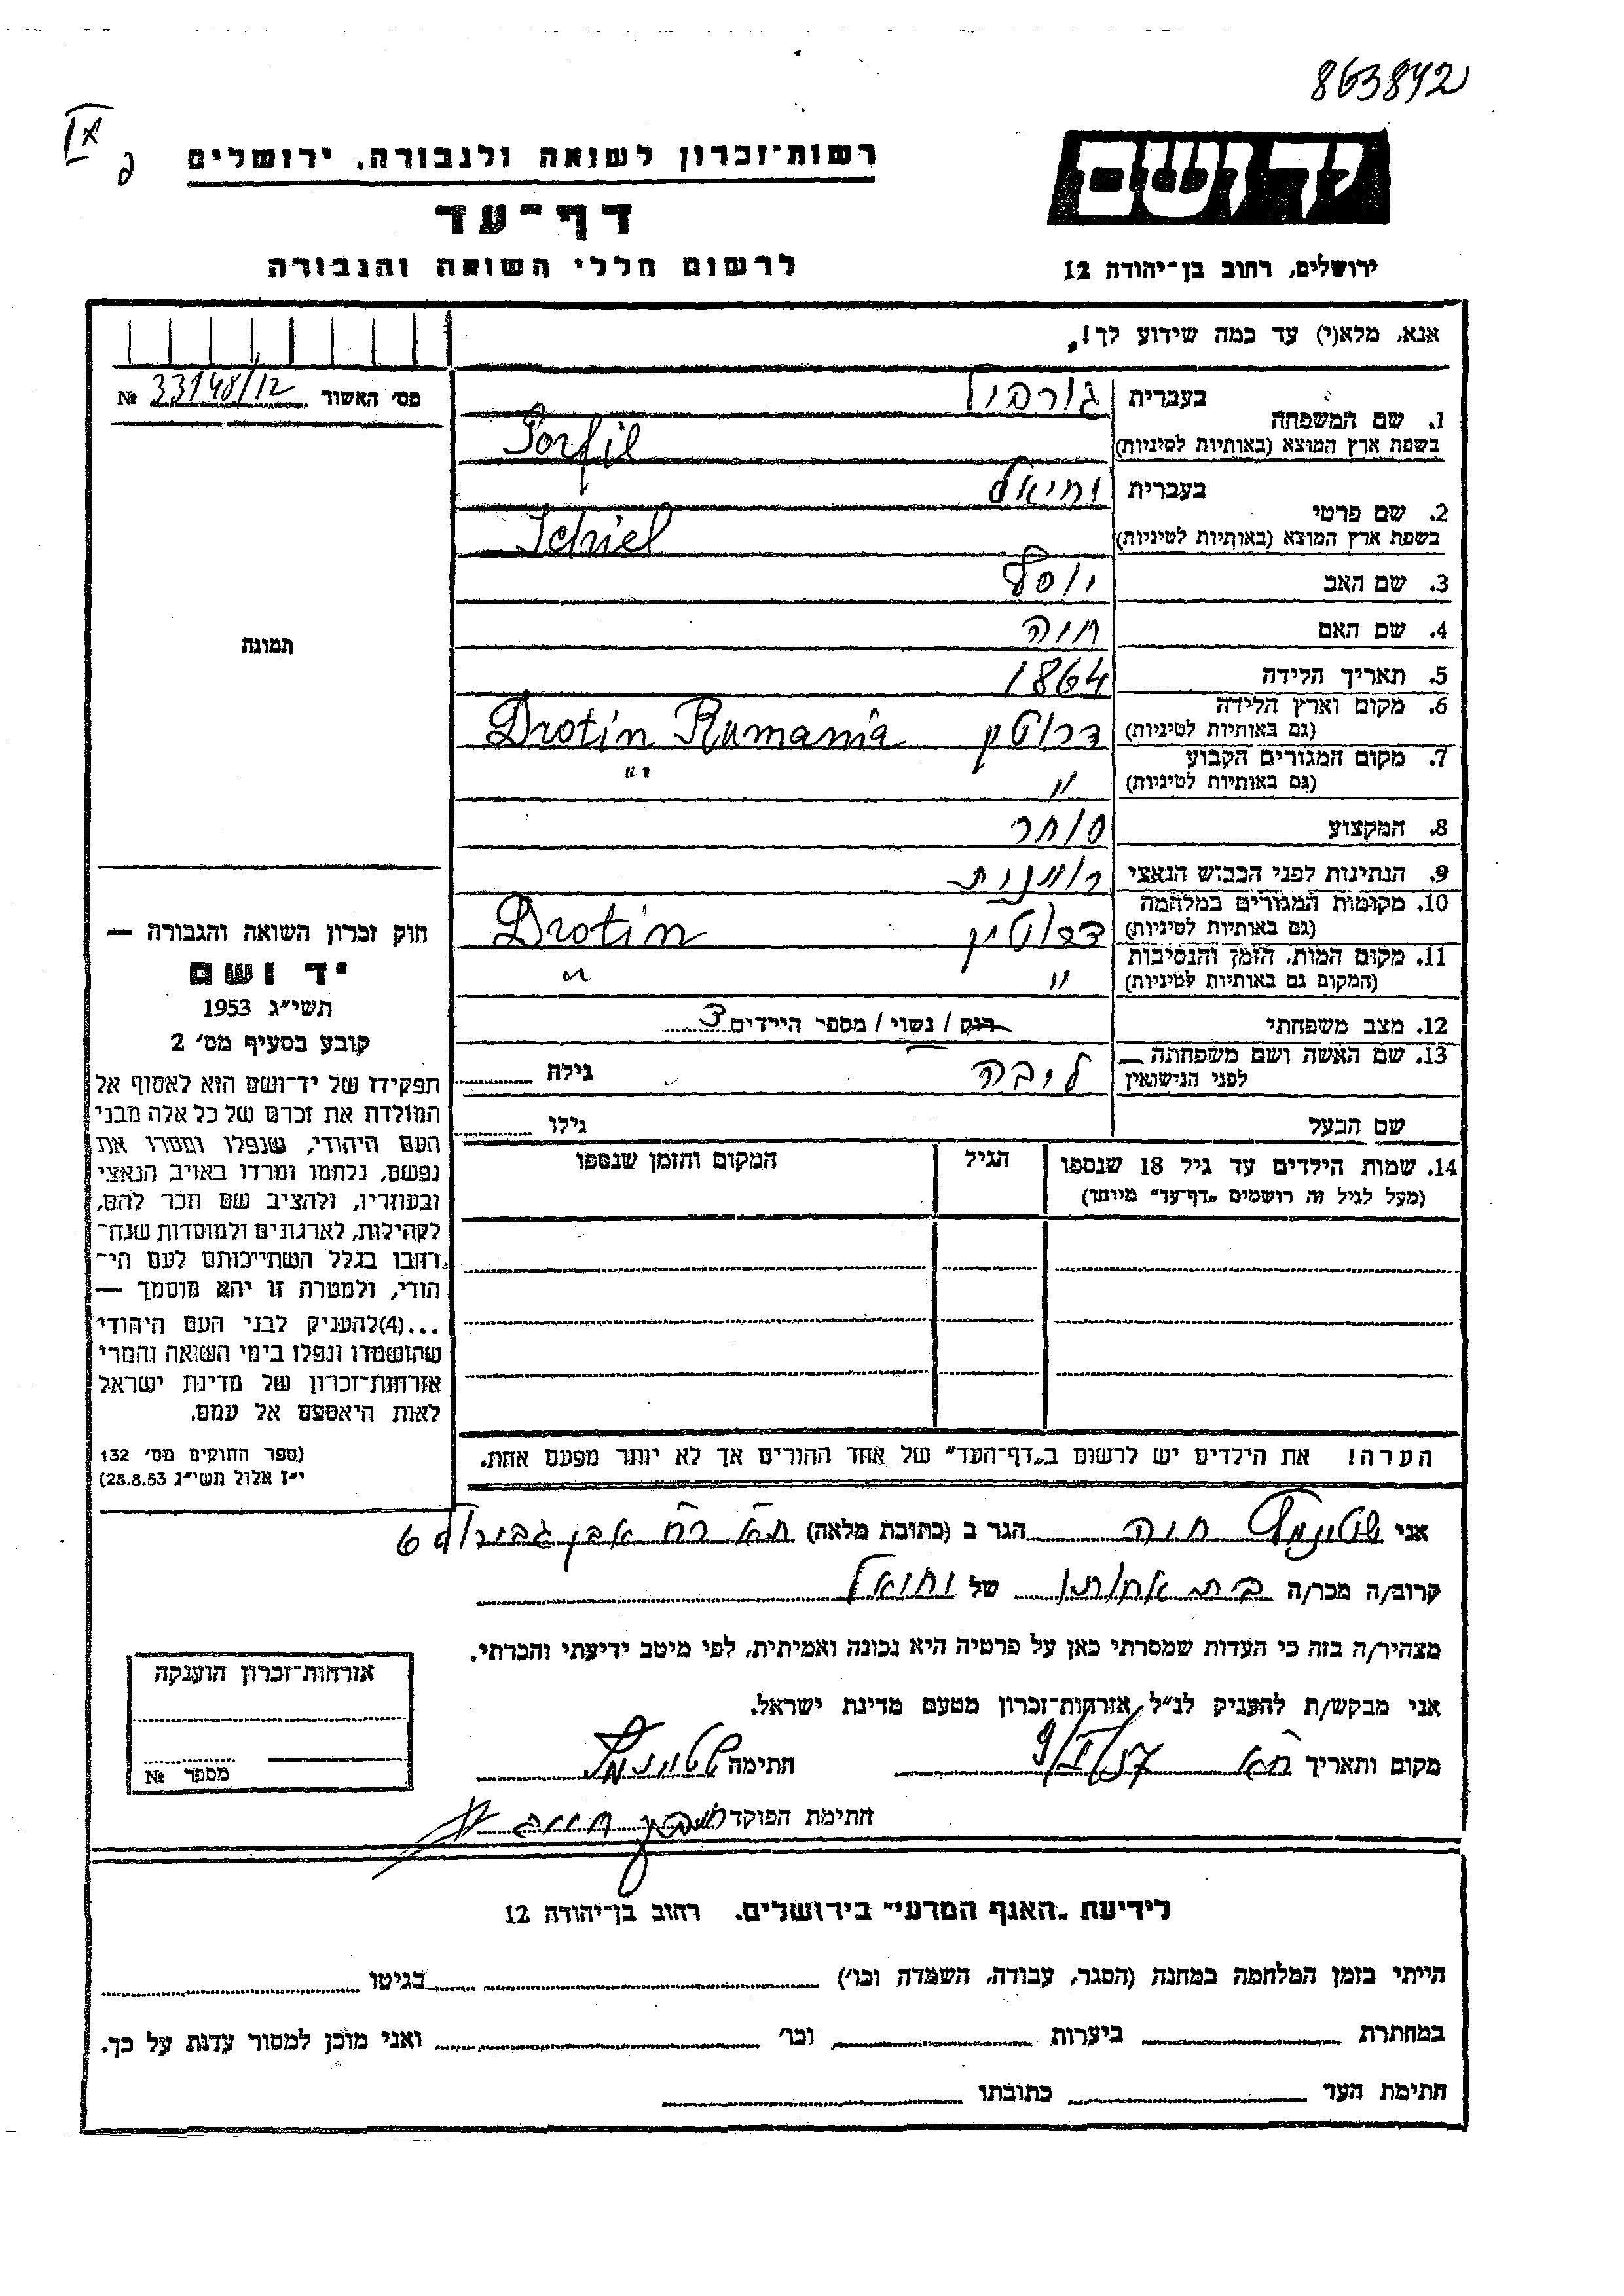 863842
IX
רשות־זכרון לשואה ולגבורה, ירושלים
יד ושם
דף־עד
לרשום חללי השואה והגבורה
ירושלים, רחוב בן־יהודה 12
אנא, מלא(י) עד כמה שידוע לך!
מס׳ האשור № 33148/12
תמונה
1. שם המשפחה בעברית
בשפת ארץ המוצא (באותיות לטיניות)
2. שם פרטי בעברית
בשפת ארץ המוצא (באותיות לטיניות) Ichiel
3. שם האב יוסף
4. שם האם חוה
5. תאריך הלידה 1864
6. מקום וארץ הלידה
(גם באותיות לטיניות) דרוטין Drotin Rumania
7. מקום המגורים הקבוע
(גם באותיות לטיניות) " "
8. המקצוע סוחר
9. הנתינות לפני הכבוש הנאצי רומנית
10. מקומות המגורים במלחמה
(גם באותיות לטיניות) דרוטין Drotin
11. מקום המות, הזמן והנסיבות
(המקום גם באותיות לטיניות) " "
12. מצב משפחתי רוק / נשוי / מספר הילדים 3
13. שם האשה ושם משפחתה
לפני הנישואין ליבה גילה
שם הבעל גילו
14. שמות הילדים עד גיל 18 שנספו הגיל המקום והזמן שנספו
(מעל לגיל זה רושמים „דף־עד” מיוחד)
הערה! את הילדים יש לרשום ב„דף־העד” של אחד ההורים אך לא יותר מפעם אחת.
חוק זכרון השואה והגבורה —
יד ושם
תשי״ג 1953
קובע בסעיף מס׳ 2
תפקידו של יד־ושם הוא לאסוף אל
המולדת את זכרם של כל אלה מבני
העם היהודי, שנפלו ומסרו את
נפשם, נלחמו ומרדו באויב הנאצי
ובעוזריו, ולהציב שם וזכר להם,
לקהילות, לארגונים ולמוסדות שנח־
רבו בגלל השתייכותם לעם הי־
הודי, ולמטרה זו יהא מוסמך —
...(4)להעניק לבני העם היהודי
שהושמדו ונפלו בימי השואה והמרי
אזרחות־זכרון של מדינת ישראל
לאות היאספם אל עמם.
(ספר החוקים מס׳ 132
י״ז אלול תשי״ג 28.8.53)
אני חוה הגר ב (כתובת מלאה) ת״א רח׳ אבן גבירול 6
קרוב/ה מכר/ה בת אחותו של
מצהיר/ה בזה כי העדות שמסרתי כאן על פרטיה היא נכונה ואמיתית, לפי מיטב ידיעתי והכרתי.
אני מבקש/ת להעניק לנ״ל אזרחות־זכרון מטעם מדינת ישראל.
מקום ותאריך ת״א חתימה
חתימת הפוקד
אזרחות־זכרון הוענקה
מספר №
לידיעת „האגף המדעי” בירושלים, רחוב בן־יהודה 12
הייתי בזמן המלחמה במחנה (הסגר, עבודה, השמדה וכו׳) בגיטו
במחתרת ביערות וכו׳ ואני מוכן למסור עדות על כך.
חתימת העד כתובתו